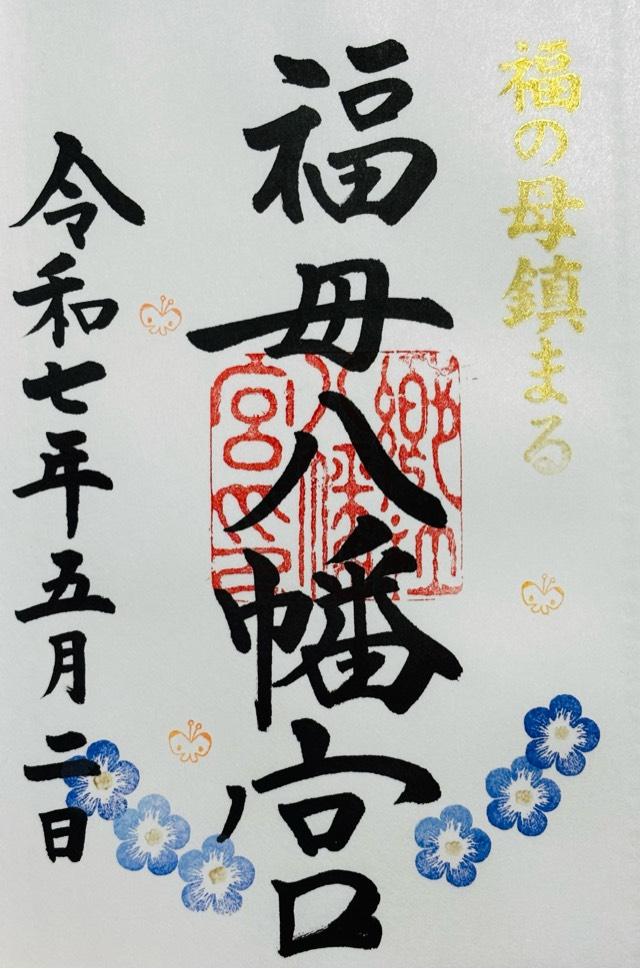 福の母鎮まる
福母八幡宮
令和七年五月二日